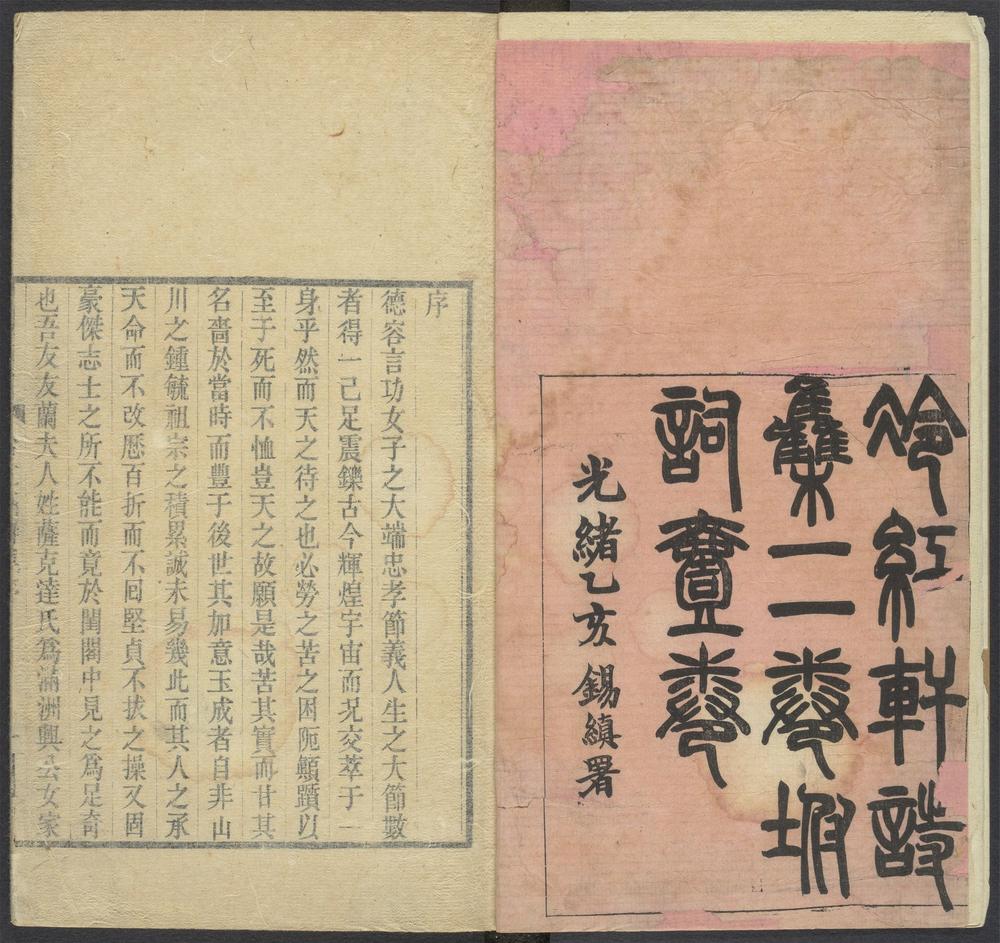 泠紅軒詩
集二卷坿
詞壹卷
光緒乙亥 錫縝署
序
德容言功女子之大端忠孝節義人生之大節數
者得一己足震鑠古今輝煌宇宙而況交萃于一
身乎然而天之待之也必勞之苦之困阨顛躓以
至于死而不恤豈天之故願是哉苦其實而甘其
名嗇於當時而豐于後世其加意玉成者自非山
川之鍾毓祖宗之積累誠未易幾此而其人之承
天命而不改歷百折而不回堅貞不拔之操又固
豪傑志士之所不能而竟於閨閣中見之為足奇
也吾友友蘭夫人姓薩克達氏為滿洲興公女家